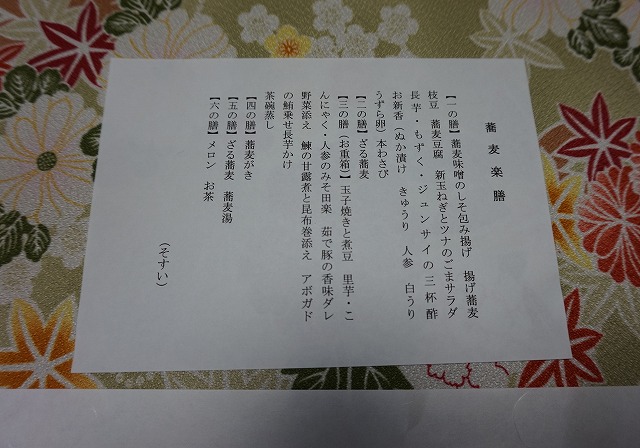 蕎麦楽膳
【一の膳】蕎麦味噌のしそ包み揚げ　揚げ蕎麦
枝豆　蕎麦豆腐　新玉ねぎとツナのごまサラダ
長芋・もずく・ジュンサイの三杯酢
お新香（ぬか漬け　きゅうり　人参　白うり
うずら卵）本わさび
【二の膳】ざる蕎麦
【三の膳】（お重箱）玉子焼きと煮豆　里芋・こ
んにゃく・人参のみそ田楽　茹で豚の香味ダレ
野菜添え　鰊の甘露煮と昆布巻添え　アボガド
の鮪乗せ長芋かけ
茶碗蒸し
【四の膳】蕎麦がき
【五の膳】ざる蕎麦　蕎麦湯
【六の膳】メロン　お茶
（そすい）